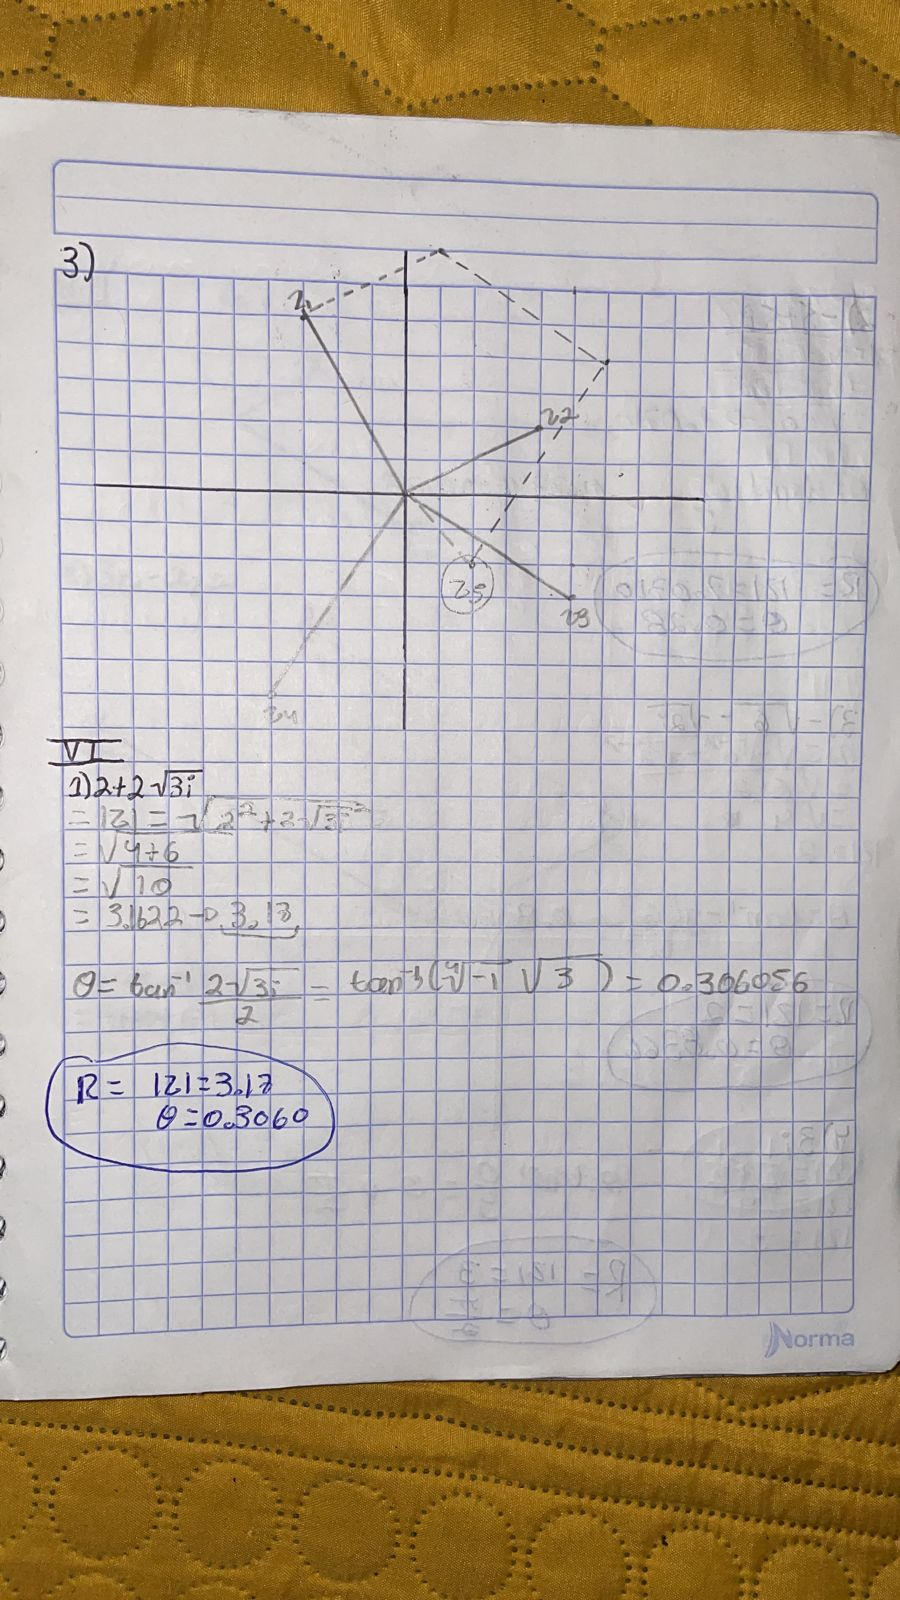 3)
z1
z2
z5
z3
z4
VI
1) 2+2√3i
= |z| = √2²+2√3i²
= √4+6
= √10
= 3.1622 → 3.17
θ = tan⁻¹ 2√3i/2 = tan⁻¹(∜-1 √3) = 0.306056
R = |z| = 3.17
θ = 0.3060
Norma